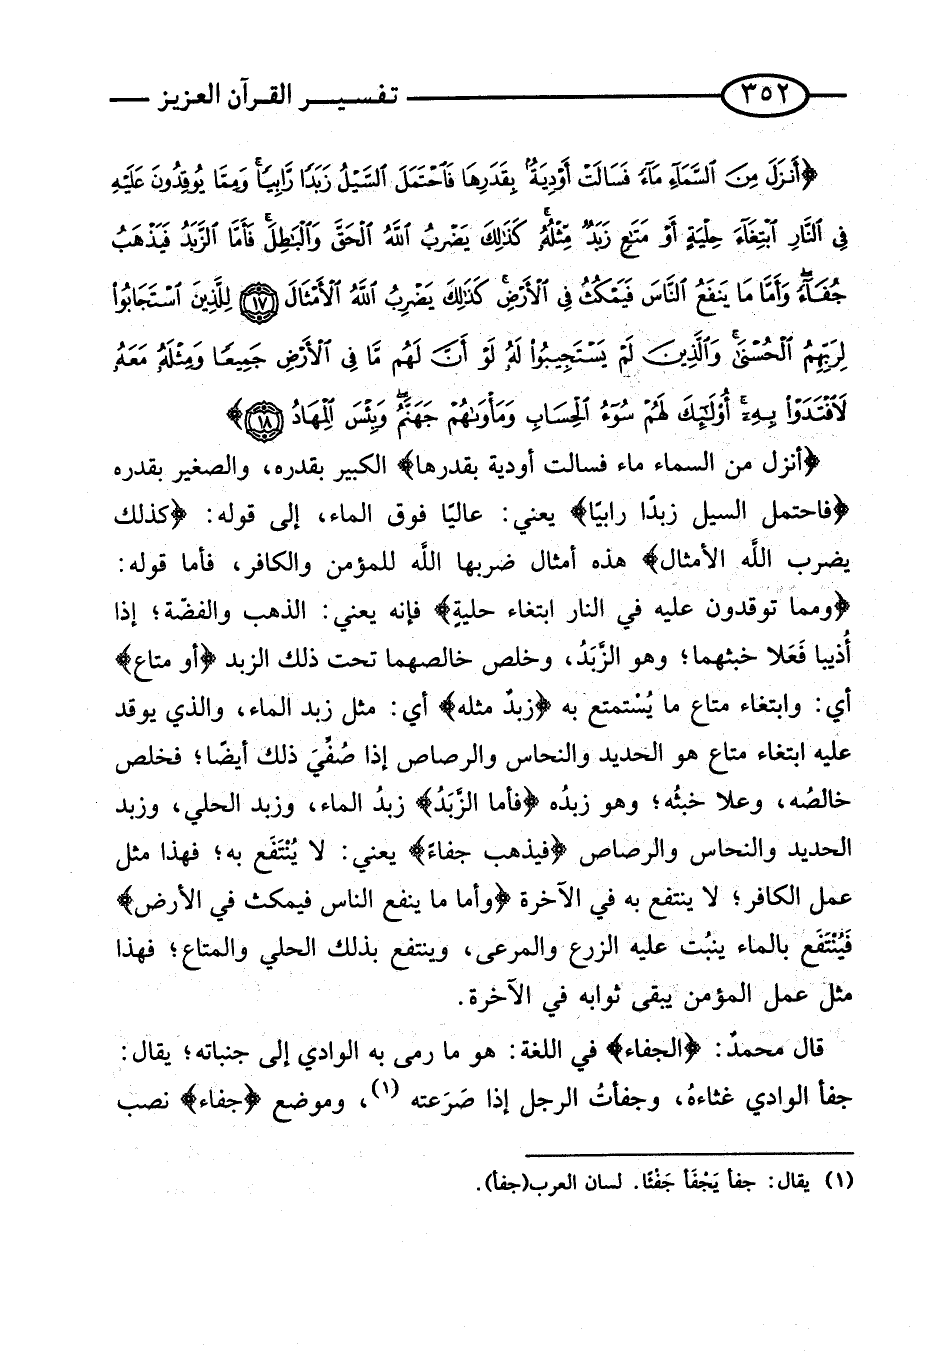 ٣٥٢ تفسير القرآن العزيز
﴿أَنزَلَ مِنَ ٱلسَّمَآءِ مَآءً فَسَالَتْ أَوْدِيَةٌۢ بِقَدَرِهَا فَٱحْتَمَلَ ٱلسَّيْلُ زَبَدًا رَّابِيًا ۚ وَمِمَّا يُوقِدُونَ عَلَيْهِ
فِى ٱلنَّارِ ٱبْتِغَآءَ حِلْيَةٍ أَوْ مَتَـٰعٍ زَبَدٌ مِّثْلُهُۥ ۚ كَذَٰلِكَ يَضْرِبُ ٱللَّهُ ٱلْحَقَّ وَٱلْبَـٰطِلَ ۚ فَأَمَّا ٱلزَّبَدُ فَيَذْهَبُ
جُفَآءً ۖ وَأَمَّا مَا يَنفَعُ ٱلنَّاسَ فَيَمْكُثُ فِى ٱلْأَرْضِ ۚ كَذَٰلِكَ يَضْرِبُ ٱللَّهُ ٱلْأَمْثَالَ ١٧ لِلَّذِينَ ٱسْتَجَابُوا۟
لِرَبِّهِمُ ٱلْحُسْنَىٰ ۚ وَٱلَّذِينَ لَمْ يَسْتَجِيبُوا۟ لَهُۥ لَوْ أَنَّ لَهُم مَّا فِى ٱلْأَرْضِ جَمِيعًا وَمِثْلَهُۥ مَعَهُۥ
لَٱفْتَدَوْا۟ بِهِۦٓ ۚ أُو۟لَـٰٓئِكَ لَهُمْ سُوٓءُ ٱلْحِسَابِ وَمَأْوَىٰهُمْ جَهَنَّمُ ۖ وَبِئْسَ ٱلْمِهَادُ ١٨﴾
﴿أنزل من السماء ماء فسالت أودية بقدرها﴾ الكبير بقدره، والصغير بقدره
﴿فاحتمل السيل زبدًا رابيًا﴾ يعني: عاليًا فوق الماء، إلى قوله: ﴿كذلك
يضرب اللَّه الأمثال﴾ هذه أمثال ضربها اللَّه للمؤمن والكافر، فأما قوله:
﴿ومما توقدون عليه في النار ابتغاء حليةٍ﴾ فإنه يعني: الذهب والفضّة؛ إذا
أُذيبا فَعَلا خبثهما؛ وهو الزَّبَدُ، وخلص خالصهما تحت ذلك الزبد ﴿أو متاع﴾
أي: وابتغاء متاع ما يُسْتمتع به ﴿زبدٌ مثله﴾ أي: مثل زبد الماء، والذي يوقد
عليه ابتغاء متاع هو الحديد والنحاس والرصاص إذا صُفِّيَ ذلك أيضًا؛ فخلص
خالصُه، وعلا خبثُه؛ وهو زبدُه ﴿فأما الزَّبَدُ﴾ زبدُ الماء، وزبد الحلي، وزبد
الحديد والنحاس والرصاص ﴿فيذهب جفاءً﴾ يعني: لا يُنْتَفَع به؛ فهذا مثل
عمل الكافر؛ لا ينتفع به في الآخرة ﴿وأما ما ينفع الناس فيمكث في الأرض﴾
فَيُنْتَفَع بالماء ينبُت عليه الزرع والمرعى، وينتفع بذلك الحلي والمتاع؛ فهذا
مثل عمل المؤمن يبقى ثوابه في الآخرة.
قال محمدٌ: ﴿الجفاء﴾ في اللغة: هو ما رمى به الوادي إلى جنباته؛ يقال:
جفأ الوادي غثاءهُ، وجفأتُ الرجل إذا صَرَعته (١)، وموضع ﴿جفاء﴾ نصب
(١) يقال: جفأ يَجْفَأ جَفْئًا. لسان العرب(جفأ).